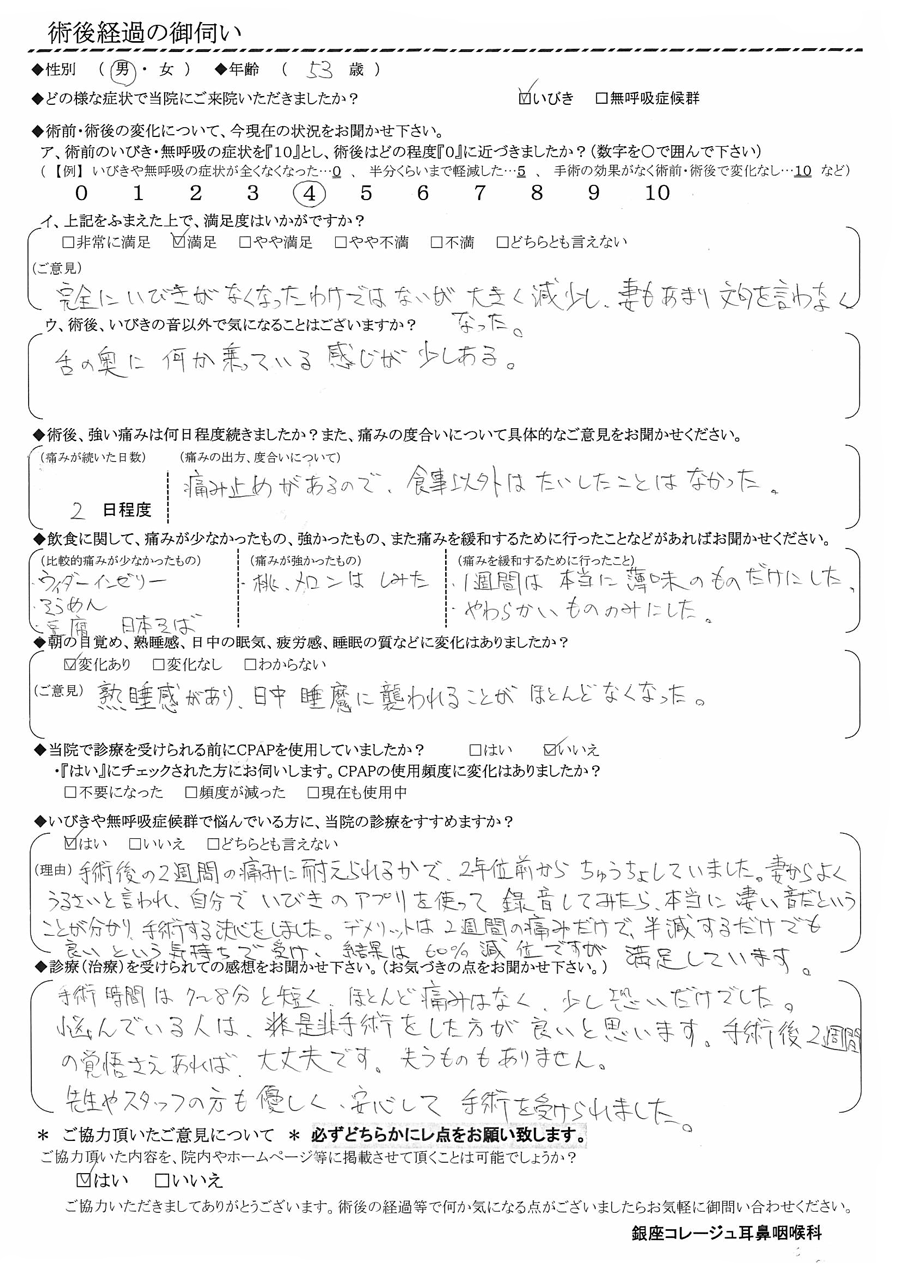 術後経過の御伺い
◆性別 （ 男 ・ 女 ） ◆年齢 （ 53 歳 ）
◆どの様な症状で当院にご来院いただきましたか？ ☑いびき □無呼吸症候群
◆術前・術後の変化について、今現在の状況をお聞かせ下さい。
ア、術前のいびき・無呼吸の症状を『10』とし、術後はどの程度『0』に近づきましたか？（数字を○で囲んで下さい）
（ 【例】 いびきや無呼吸の症状が全くなくなった…0 、 半分くらいまで軽減した…5 、 手術の効果がなく術前・術後で変化なし…10 など）
0 1 2 3 4 5 6 7 8 9 10
イ、上記をふまえた上で、満足度はいかがですか？
□非常に満足 ☑満足 □やや満足 □やや不満 □不満 □どちらとも言えない
（ご意見）
完全にいびきがなくなったわけではないが大きく減少し、妻もあまり文句を言わなく
なった。
ウ、術後、いびきの音以外で気になることはございますか？
舌の奥に何か乗っている感じが少しある。
◆術後、強い痛みは何日程度続きましたか？また、痛みの度合いについて具体的なご意見をお聞かせください。
（痛みが続いた日数） （痛みの出方、度合いについて）
痛み止めがあるので、食事以外はたいしたことはなかった。
2 日程度
◆飲食に関して、痛みが少なかったもの、強かったもの、また痛みを緩和するために行ったことなどがあればお聞かせください。
（比較的痛みが少なかったもの） （痛みが強かったもの） （痛みを緩和するために行ったこと）
・ウィダーインゼリー ・桃、メロンはしみた ・1週間は本当に薄味のものだけにした、
・そうめん ・やわらかいもののみにした。
・豆腐 日本そば
◆朝の目覚め、熟睡感、日中の眠気、疲労感、睡眠の質などに変化はありましたか？
☑変化あり □変化なし □わからない
（ご意見） 熟睡感があり、日中睡魔に襲われることがほとんどなくなった。
◆当院で診療を受けられる前にCPAPを使用していましたか？ □はい ☑いいえ
・『はい』にチェックされた方にお伺いします。CPAPの使用頻度に変化はありましたか？
□不要になった □頻度が減った □現在も使用中
◆いびきや無呼吸症候群で悩んでいる方に、当院の診療をすすめますか？
☑はい □いいえ □どちらとも言えない
（理由） 手術後の2週間の痛みに耐えられるかで、2年位前からちゅうちょしていました。妻からよく
うるさいと言われ、自分でいびきのアプリを使って録音してみたら、本当に凄い音だという
ことが分かり、手術する決心をしました。デメリットは2週間の痛みだけで、半減するだけでも
良いという気持ちで受け、結果は60%減位ですが満足しています。
◆診療（治療）を受けられての感想をお聞かせ下さい。（お気づきの点をお聞かせ下さい。）
手術時間は7〜8分と短く、ほとんど痛みはなく、少し恐いだけでした。
悩んでいる人は、是非手術をした方が良いと思います。手術後2週間
の覚悟さえあれば、大丈夫です。失うものもありません。
先生やスタッフの方も優しく、安心して手術を受けられました。
＊ ご協力頂いたご意見について ＊ 必ずどちらかにレ点をお願い致します。
ご協力頂いた内容を、院内やホームページ等に掲載させて頂くことは可能でしょうか？
☑はい □いいえ
ご協力いただきましてありがとうございます。術後の経過等で何か気になる点がございましたらお気軽に御問い合わせください。
銀座コレージュ耳鼻咽喉科